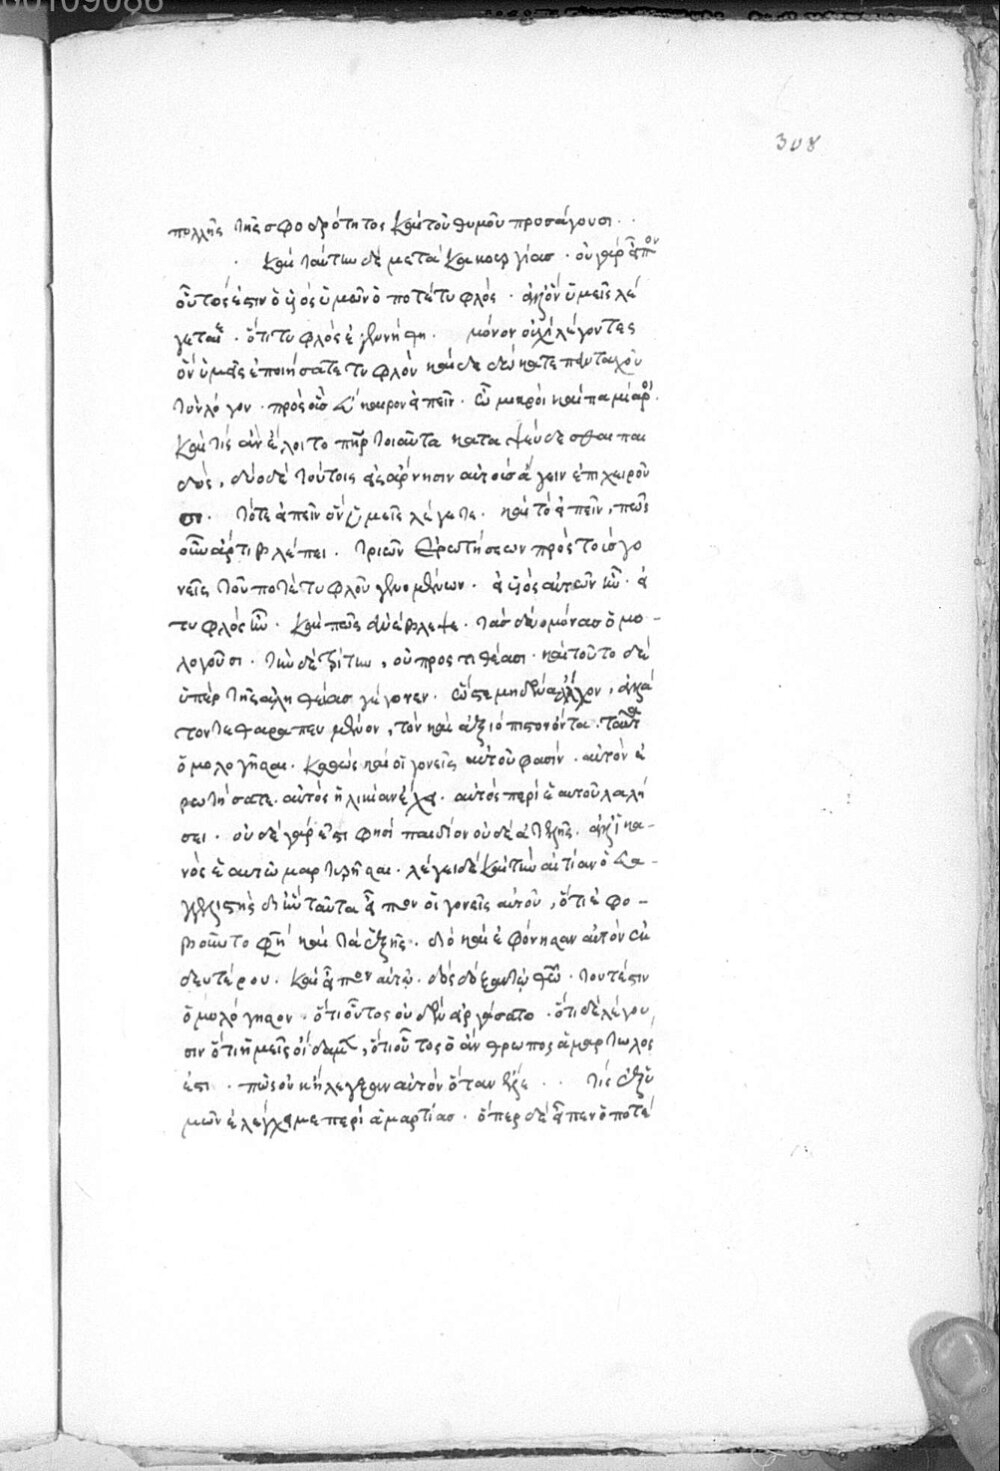 308
πολλῆς τῆς σφοδρότητος καὶ τοῦ θυμοῦ προσάγουσι.
καὶ ταύτην δὲ μετὰ κακουργίασ. οὐ γὰρ εἶπον
οὗτός ἐστιν ὁ υἱὸς ὑμῶν ὁ ποτὲ τυφλός. ἀλλ' ὃν ὑμεῖς λέ
γεται. ὅτι τυφλὸς ἐγεννήθη. μόνον οὐχὶ λέγοντες
ὃν ὑμεῖς ἐποιήσατε τυφλὸν καὶ διεδώκατε πανταχοῦ
τὸν λόγον. πρὸς οὓσ καιρον εἰπεῖν. ὦ μιαροὶ καὶ παμμίαροι.
καὶ τίς ἂν ἕλοιτο πατὴρ τοιαῦτα καταψεύδεσθαι παι
δός, δύο δὲ τούτοις εἰς ἄρνησιν αὐτοὺσ ἄγειν ἐπιχειροῦ
σι. τότε εἰπεῖν ὃν ὑμεῖς λέγετε. καὶ τὸ εἰπεῖν, πῶς
οὖν ἄρτι βλέπει. τριῶν ἐρωτήσεων πρὸς τοὺσ γο
νεῖς τοῦ ποτὲ τυφλοῦ γενομένων. εἰ υἱὸς αὐτῶν ἦν. εἰ
τυφλὸς ἦν. καὶ πῶς ἀνέβλεψε. τὰσ δύο μόνασ ὁμο-
λογοῦσι. τὴν δὲ τρίτην, οὐ προστιθέασι. καὶ τοῦτο δὲ
ὑπὲρ τῆς ἀληθείασ γέγονεν. ὥστε μηδένα ἄλλον, ἀλλὰ
τον τεθαραπευμένον, τὸν καὶ ἀξιόπιστον ὄντα. ταῦτα
ὁμολογῆσαι. καθὼς καὶ οἱ γονεῖς αὐτοῦ φασίν. αὐτὸν ἐ
ρωτήσατε. αὐτὸς ἡλικίαν ἔχει. αὐτὸς περὶ ἑαυτοῦ λαλή
σει. οὐδὲ γάρ ἐστι φησὶ παιδίον οὐδὲ ἀτελὴς. ἀλλ' ἱκα-
νὸς ἑαυτῶ μαρτυρῆσαι. λέγει δὲ καὶ τὴν αἰτίαν ὁ εὐα-
γγελιστὴς δι' ἣν ταῦτα εἶπον οἱ γονεῖς αὐτοῦ, ὅτι ἐφο-
βοῦντο φησὶ καὶ τὰ ἑξῆς. διὸ καὶ ἐφώνησαν αὐτὸν ἐκ
δευτέρου. καὶ εἶπον αὐτῷ. δὸς δόξαν τῷ θεῶ. τουτέστιν
ὁμολόγησον. ὅτι οὗτος οὐδὲν εἰργάσατο. ὅτι δὲ λέγου
σιν ὅτι ἡμεῖς οἴδαμεν, ὅτι οὗτος ὁ ἄνθρωπος ἁμαρτωλος
ἐστι. πῶς οὐκ ἠλέγξαν αὐτὸν ὅταν ἔλεγε. τίς ἐξ ὑ
μῶν ἐλέγχει με περὶ ἁμαρτίασ. ὅπερ δὲ εἶπεν ὁ ποτὲ